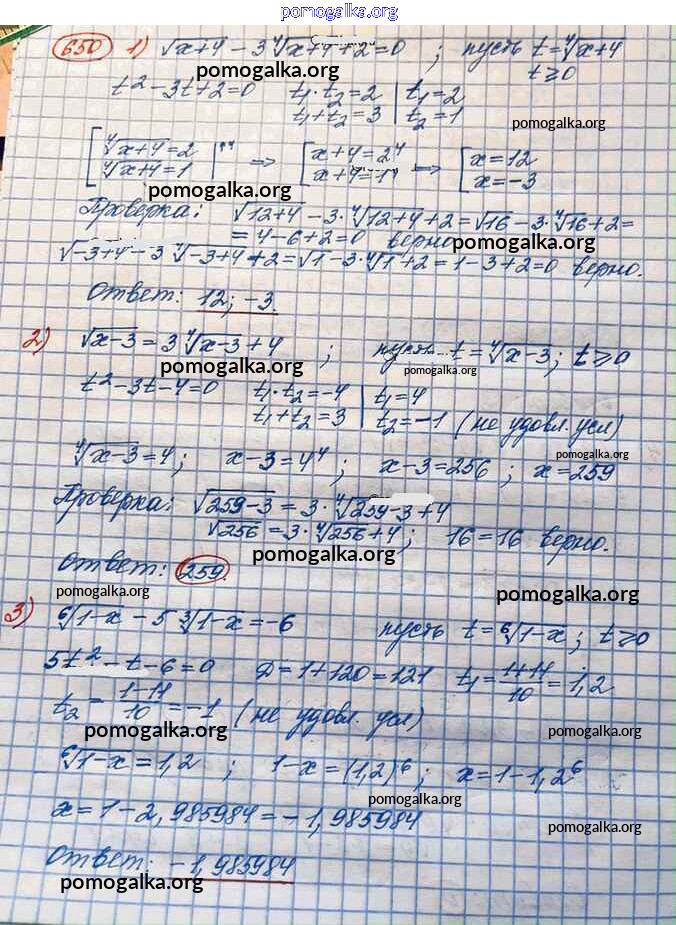 pomogalka.org
650 1) √x+4 − 3 ∜x+4 + 2 = 0 ; пусть t = ∜x+4
pomogalka.org
t ≥ 0
t² − 3t + 2 = 0 t₁ · t₂ = 2 | t₁ = 2
t₁ + t₂ = 3 | t₂ = 1
pomogalka.org
[ ∜x+4 = 2 |^4 => [ x+4 = 2⁴ => [ x = 12
∜x+4 = 1 x+4 = 1⁴ x = −3
pomogalka.org
Проверка: √12+4 − 3 · ∜12+4 + 2 = √16 − 3 · ∜16 + 2 =
= 4 − 6 + 2 = 0 верно
pomogalka.org
√−3+4 − 3 ∜−3+4 + 2 = √1 − 3 · ∜1 + 2 = 1 − 3 + 2 = 0 верно.
Ответ: 12; −3.
2) √x−3 = 3 ∜x−3 + 4 ; пусть t = ∜x−3 ; t ≥ 0
pomogalka.org
pomogalka.org
t² − 3t − 4 = 0 t₁ · t₂ = −4 | t₁ = 4
t₁ + t₂ = 3 | t₂ = −1 (не удовл. усл)
pomogalka.org
∜x−3 = 4 ; x−3 = 4⁴ ; x−3 = 256 ; x = 259
Проверка: √259−3 = 3 · ∜259−3 + 4
√256 = 3 · ∜256 + 4 ; 16 = 16 верно.
pomogalka.org
Ответ: 259.
pomogalka.org
pomogalka.org
3) ⁶√1−x − 5 ∛1−x = −6 пусть t = ⁶√1−x ; t ≥ 0
5t² − t − 6 = 0 D = 1 + 120 = 121 t₁ = 1+11/10 = 1,2
t₂ = 1−11/10 = −1 (не удовл. усл)
pomogalka.org
pomogalka.org
⁶√1−x = 1,2 ; 1−x = (1,2)⁶ ; x = 1 − 1,2⁶
pomogalka.org
x = 1 − 2,985984 = −1,985984
pomogalka.org
Ответ: −1,985984
pomogalka.org